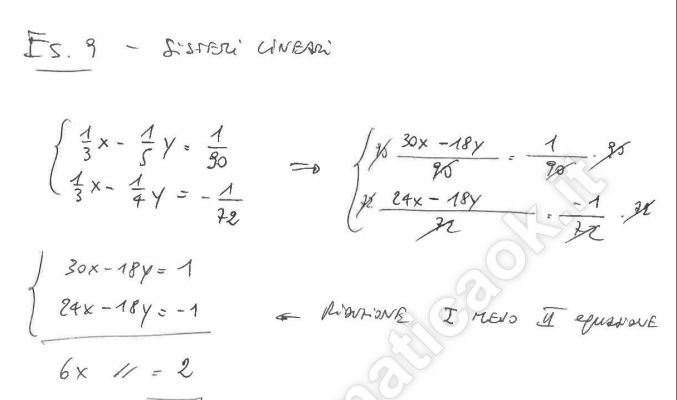 Es. 9 - SISTEMI LINEARI
{ 1/3 x - 1/5 y = 1/90 => { 90 (30x - 18y)/90 = 1/90 · 90
{ 1/3 x - 1/4 y = - 1/72 { 72 (24x - 18y)/72 = -1/72 · 72
{ 30x - 18y = 1
{ 24x - 18y = -1 ← RIDUZIONE I MENO II equazione
6x // = 2
maticaok.it